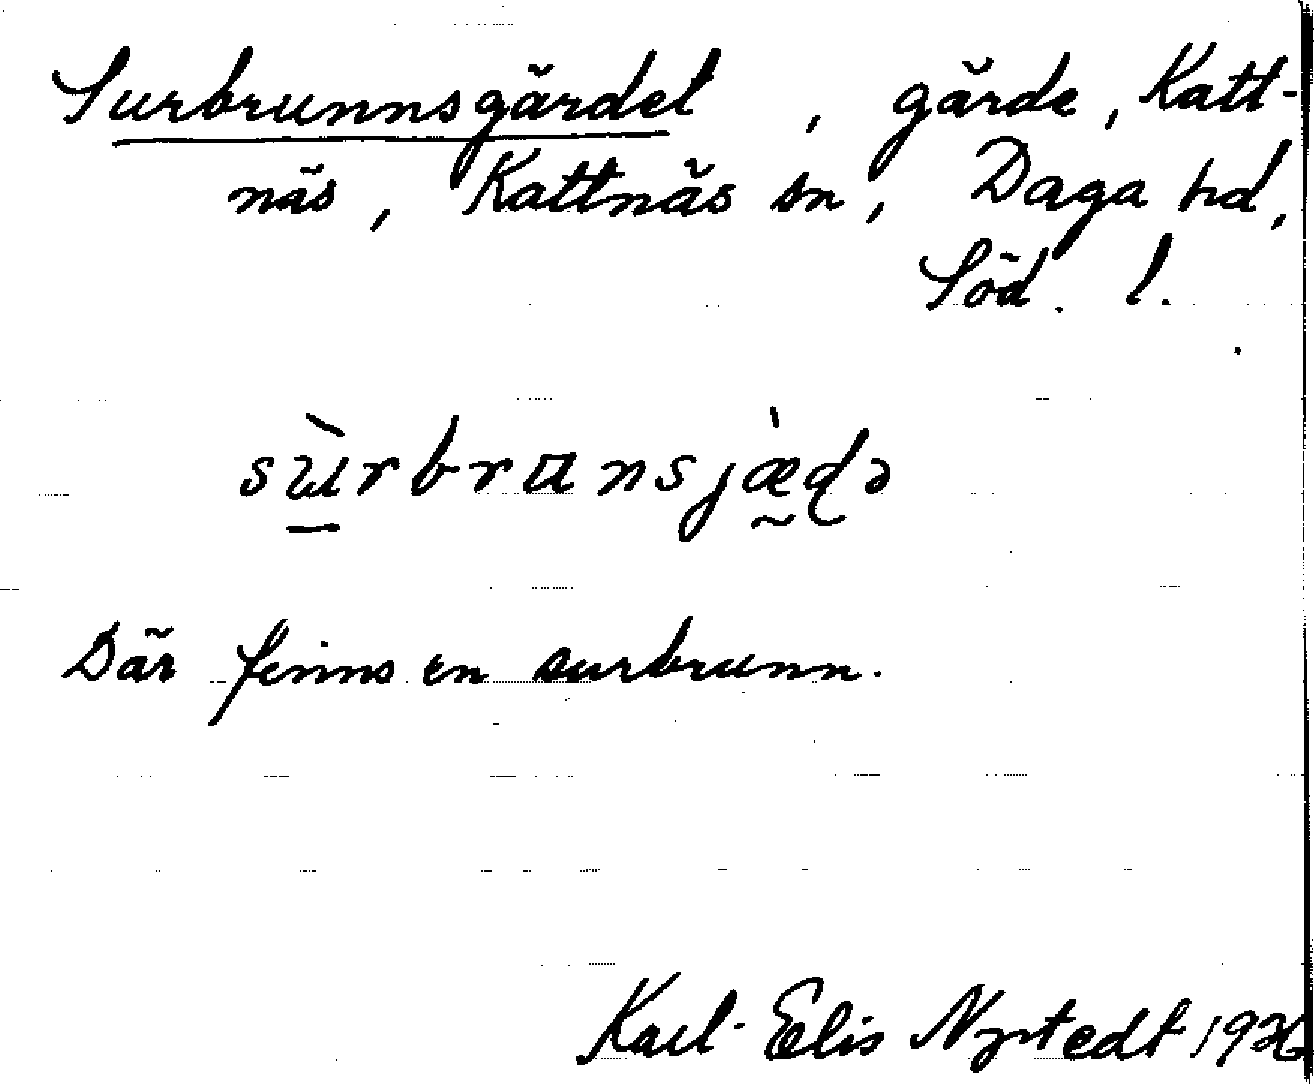 Surbrunnsgärdet, gärde, Katt-
näs, Kattnäs sn, Daga hd,
Söd. l.
sùrbrunsjæ̀ḍə
Där finns en surbrunn.
Karl-Elis Nystedt